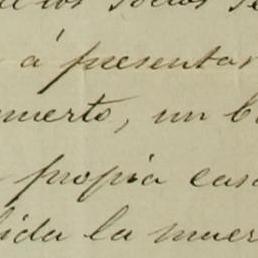 los socios
á presentar
muerto, un
propia casa
la muer